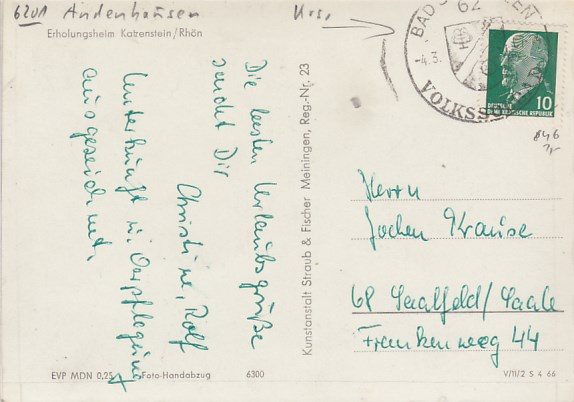 6201 Andenhausen
Krs.
Erholungsheim Katzenstein/Rhön
Die besten Urlaubsgrüße
sendet Dir
Christine, Rolf
Unterkunft u. Verpflegung
ausgezeichnet.
Kunstanstalt Straub & Fischer Meiningen, Reg.-Nr. 23
BAD
62
-4.3.
VOLKSS
DEUTSCHE
DEMOKRATISCHE REPUBLIK
10
Herrn
Jochen Krause
68 Saalfeld/Saale
Frankenweg 44
EVP MDN 0,25
Foto-Handabzug
6300
V/11/2 5 4 66